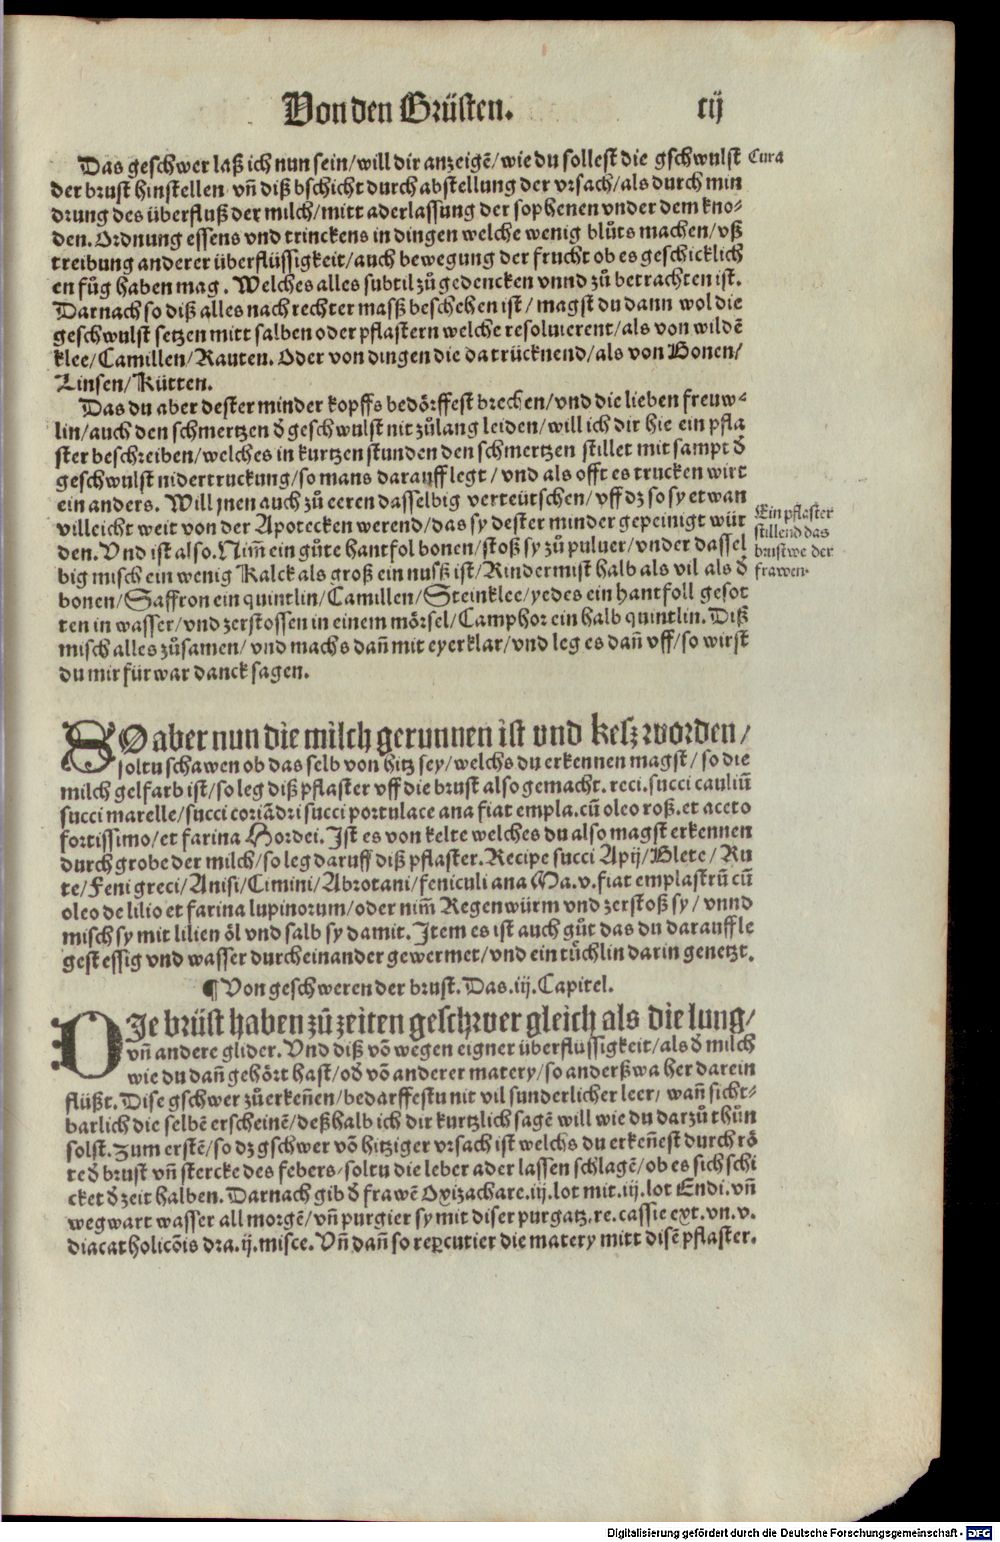 Von den Brüsten. cij
Das geschwer laß ich nun sein/will dir anzeigẽ/wie du sollest die gschwulst
Cura
der brust hinstellen vñ diß bschicht durch abstellung der vrsach/als durch min
drung des überfluß der milch/mitt aderlassung der sophenen vnder dem kno-
den. Ordnung essens vnd trinckens in dingen welche wenig blůts machen/vß
treibung anderer überflüssigkeit/auch bewegung der frucht ob es geschicklich
en fůg haben mag. Welches alles subtil zů gedencken vnnd zů betrachten ist.
Darnach so diß alles nach rechter masß beschehen ist/ magst du dann wol die
geschwulst setzen mitt salben oder pflastern welche resoluierent/als von wildẽ
klee/Camillen/Rauten. Oder von dingen die da trücknend/als von Bonen/
Linsen/Kütten.
Das du aber dester minder kopffs bedörffest brechen/vnd die lieben freuw-
lin/auch den schmertzen d̄ geschwulst nit zůlang leiden/will ich dir hie ein pfla
ster beschreiben/welches in kurtzen stunden den schmertzen stillet mit sampt d̄
geschwulst nidertruckung/so mans darauff legt/vnd als offt es trucken wirt
ein anders. Will jnen auch zů eeren dasselbig verteütschen/vff dz so sy etwan
villeicht weit von der Apotecken werend/das sy dester minder gepeinigt wür
Ein pflaster
stillend das
brust we der
frawen.
den. Vnd ist also. Nim̃ ein gůte hantfol bonen/stoß sy zů puluer/vnder dassel
big misch ein wenig Kalck als groß ein nusß ist/Rindermist halb als vil als d̄
bonen/Saffron ein quintlin/Camillen/Steinklee/yedes ein hantfoll gesot
ten in wasser/vnd zerstossen in einem mörsel/Camphor ein halb quintlin. Diß
misch alles zůsamen/vnd machs dañ mit eyerklar/vnd leg es dañ vff/so wirst
du mir für war danck sagen.
SO aber nun die milch gerunnen ist vnd kesz worden/
soltu schawen ob das selb von hitz sey/welchs du erkennen magst/so die
milch gelfarb ist/so leg diß pflaster vff die brust also gemacht. reci. succi cauliũ
succi marelle/succi coriãdri succi portulace ana fiat empla. cũ oleo roß. et aceto
fortissimo/et farina Hordei. Ist es von kelte welches du also magst erkennen
durch grobe der milch/so leg daruff diß pflaster. Recipe succi Apij/Blete/Ru
te/Feni greci/Anisi/Cimini/Abrotani/feniculi ana Ma. v. fiat emplastrũ cũ
oleo de lilio et farina lupinorum/oder nim̃ Regenwürm vnd zerstoß sy/vnnd
misch sy mit lilien öl vnd salb sy damit. Item es ist auch gůt das du darauff le
gest essig vnd wasser durcheinander gewermet/vnd ein tüchlin darin genetzt.
¶ Von geschweren der brust. Das. iij. Capitel.
DIe brüst haben zů zeiten geschwer gleich als die lung/
vñ andere glider. Vnd diß võ wegen eigner überflüssigkeit/als d̄ milch
wie du dañ gehört hast/od̄ võ anderer matery/so anderßwa her darein
flüßt. Dise gschwer zů erkeñen/bedarffestu nit vil sunderlicher leer/wañ sicht-
barlich die selbẽ erscheinẽ/deßhalb ich dir kurtzlich sagẽ will wie du darzů thůn
solst. Zum erstẽ/so dz gschwer võ hitziger vrsach ist welchs du erkeñest durch rö
te d̄ brust vñ stercke des febers/soltu die leber ader lassen schlagẽ/ob es sich schi
cket d̄ zeit halben. Darnach gib d̄ frawẽ Oxizachare. iij. lot mit. iij. lot Endi. vñ
wegwart wasser all morgẽ/vñ purgier sy mit diser purgatz. re. cassie ext. vn. v.
diacatholicõis dra. ij. misce. Vñ dañ so repcutier die matery mitt disẽ pflaster.
Digitalisierung gefördert durch die Deutsche Forschungsgemeinschaft - DFG